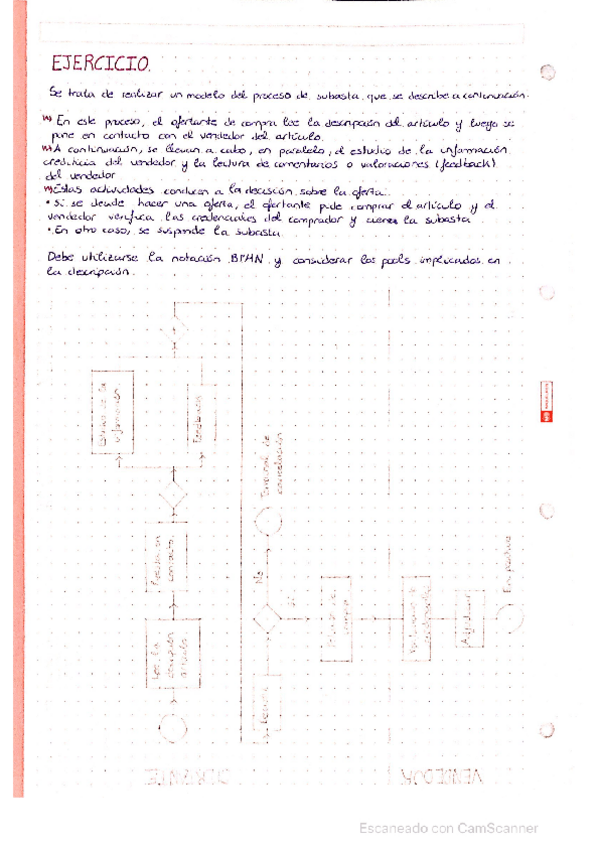 EJERCICIO.
Se trata de realizar un modelo del proceso de subasta que se describe a continuación.
En este proceso, el ofertante de compra lee la descripción del artículo y luego se
pone en contacto con el vendedor del artículo.
A continuación, se llevan a cabo, en paralelo, el estudio de la información
crediticia del vendedor y la lectura de comentarios o valoraciones (feedback)
del vendedor
Estas actividades conducen a la decisión sobre la oferta.
• Si se decide hacer una oferta, el ofertante puede comprar el artículo y el
vendedor verifica las credenciales del comprador y cierra la subasta
• En otro caso, se suspende la subasta.
Debe utilizarse la notación BPMN y considerar los pools implicados en
la descripción.
Estudio de la
información
Feedback
contacto
Lee la
artículo
No
Sí
compra
Adjudicar
OFERTANTE
VENDEDOR
Escaneado con CamScanner